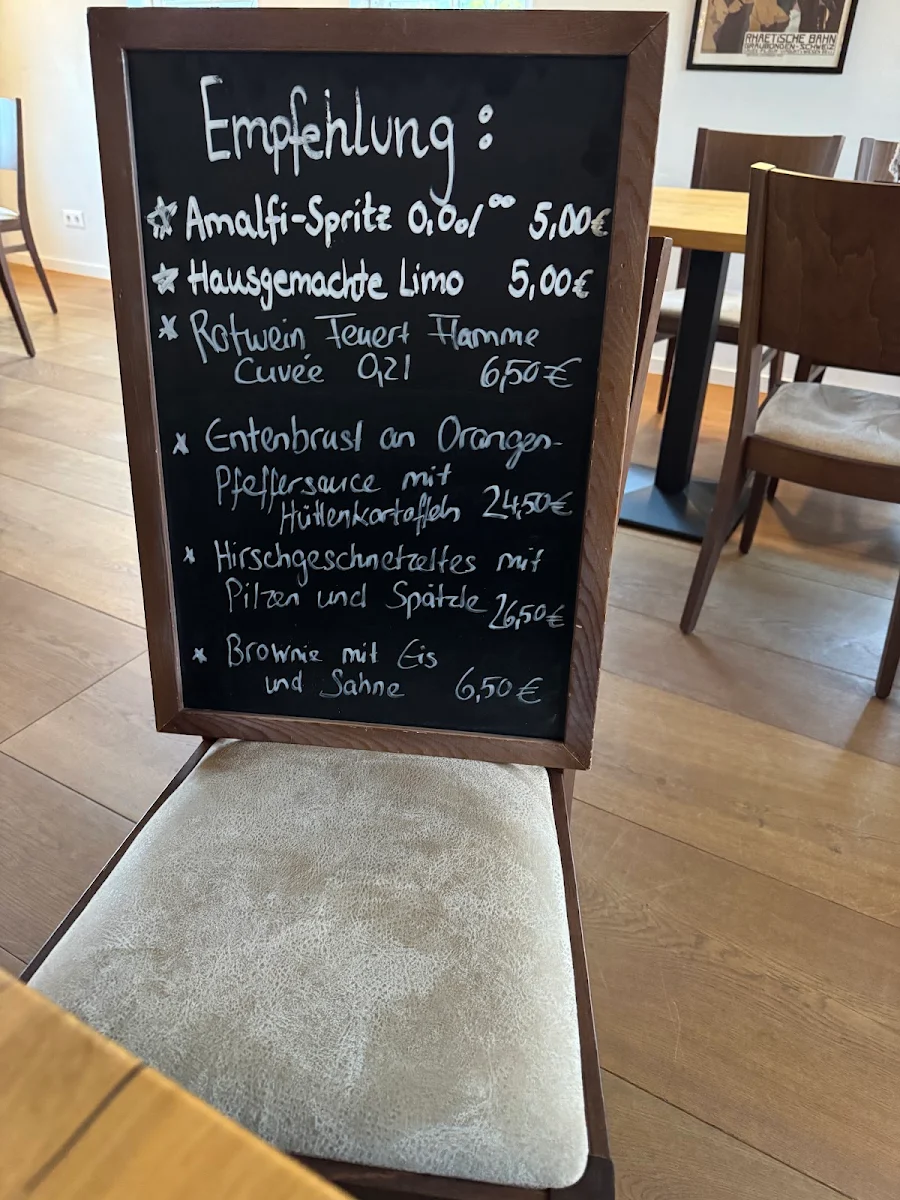 Empfehlung:
Amalfi-Spritz 0,0% 5,00€
Hausgemachte Limo 5,00€
Rotwein Feuer + Flamme
Cuvée 0,2l 6,50€
Entenbrust an Orangen-
Pfeffersauce mit
Hüttenkartoffeln 24,50€
Hirschgeschnetzeltes mit
Pilzen und Spätzle 26,50€
Brownie mit Eis
und Sahne 6,50€
RHAETISCHE BAHN
GRAUBÜNDEN-SCHWEIZ